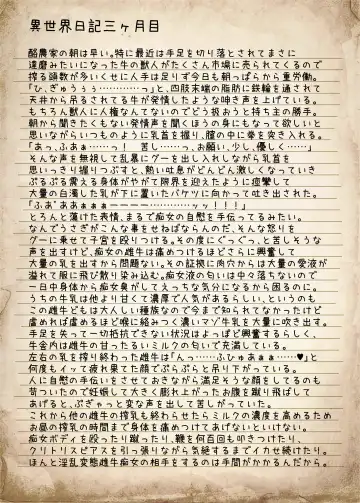 異世界日記三ヶ月目
酪農家の朝は早い。特に最近は手足を切り落とされてまさに
達磨みたいになった牛の獣人がたくさん市場に売られてくるので
搾る頭数が多いくせに人手は足りず今日も朝っぱらから重労働。
「ひ、ぎゅうぅぅ…………っ」と、四肢末端の脂肪に鉄輪を通されて
天井から吊るされてる牛が発情したような呻き声を上げている。
もちろん獣人に人権なんてないのでどう扱おうと持ち主の勝手。
朝から聞きたくもない発情声を聞くほうの身にもなって欲しいと
思いながらいつものように乳首を搾り、膣の中に拳を突き入れる。
「あっ、ふあぁ……っ！　苦し……っ、お願い、少し、優しく……」
そんな声を無視して乱暴にグーを出し入れしながら乳首を
思いっきり搾りつぶすと、熱い吐息がどんどん激しくなっていき
ぷるぷる震える身体がやがて限界を迎えたように痙攣して
大量の白濁した乳が下に置いたバケツに向かって吐き出された。
「ふあ゛ああぁぁぁーーーー…………ッッ！！！」
とろんと蕩けた表情、まるで痴女の自慰を手伝ってるみたい。
なんでうさぎがこんな事をせねばならんのだ、そんな怒りを
グーに乗せて子宮を殴りつける。その度にぐっぐっ、と苦しそうな
声を出すけど、痴女の雌牛は痛めつけるほどさらに興奮して
大量の乳を出すから問題ない。その証拠に肉穴からは大量の愛液が
溢れて服に飛び散り染み込む。痴女液の匂いは中々落ちないので
一日中身体から痴女臭がしてえっちな気分になるから困るのに。
うちの牛乳は他より甘くて濃厚で人気があるらしい、というのも
この雌牛どもは大人しい種族なので今まで知られてなかったけど
虐めれば虐めるほど喉に絡みつく濃いマゾ牛乳を大量に吹き出す。
手足を失って一切抵抗できない状況はよっぽど興奮するらしく、
牛舎内は雌牛の甘ったるいミルクの匂いで充満している。
左右の乳を搾り終わった雌牛は「んっ……ふひゅあぁぁ……♥」と
何度もイッて疲れ果てた顔でぶらぶらと吊り下がっている。
人に自慰の手伝いをさせておきながら満足そうな顔をしてるのも
苛ついたので妊娠して大きく膨れ上がったお腹を蹴り飛ばして
あげると、ぷぎゃっと変な声を出して苦しがっていた。
これから他の雌牛の搾乳も終わらせたらミルクの濃度を高めるため
お昼の搾乳の時間まで身体を痛めつけてあげないといけない。
痴女ボディを殴ったり蹴ったり、鞭を何百回も叩きつけたり、
クリトリスピアスを引っ張りながら気絶するまでイカせ続けたり。
ほんと淫乱変態雌牛痴女の相手をするのは手間がかかるんだから。